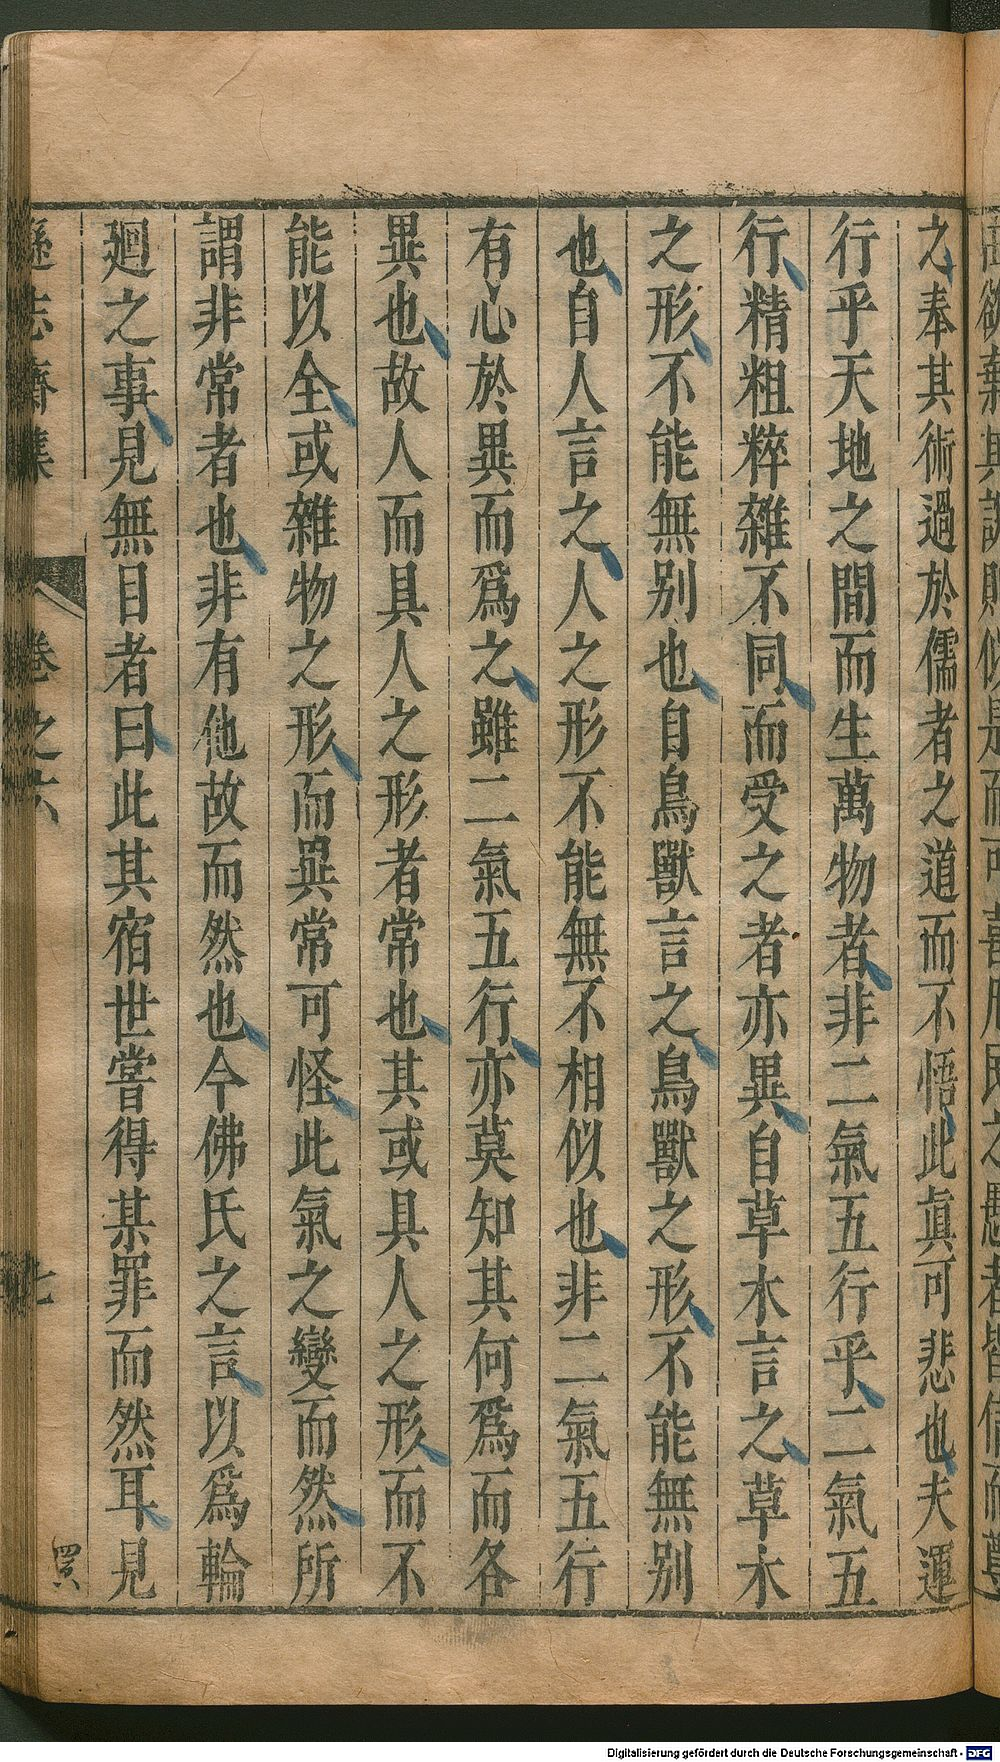 之奉其術過於儒者之道而不悟此眞可悲也夫運
行乎天地之間而生萬物者非二氣五行乎二氣五
行精粗粹雜不同而受之者亦異自草木言之草木
之形不能無别也自鳥獸言之鳥獸之形不能無别
也自人言之人之形不能無不相似也非二氣五行
有心於異而爲之雖二氣五行亦莫知其何爲而各
異也故人而具人之形者常也其或具人之形而不
能以全或雜物之形而異常可怪此氣之變而然所
謂非常者也非有他故而然也今佛氏之言以爲輪
廻之事見無目者曰此其宿世嘗得某罪而然耳見
遜志齋集 卷之六 七
Digitalisierung gefördert durch die Deutsche Forschungsgemeinschaft - DFG